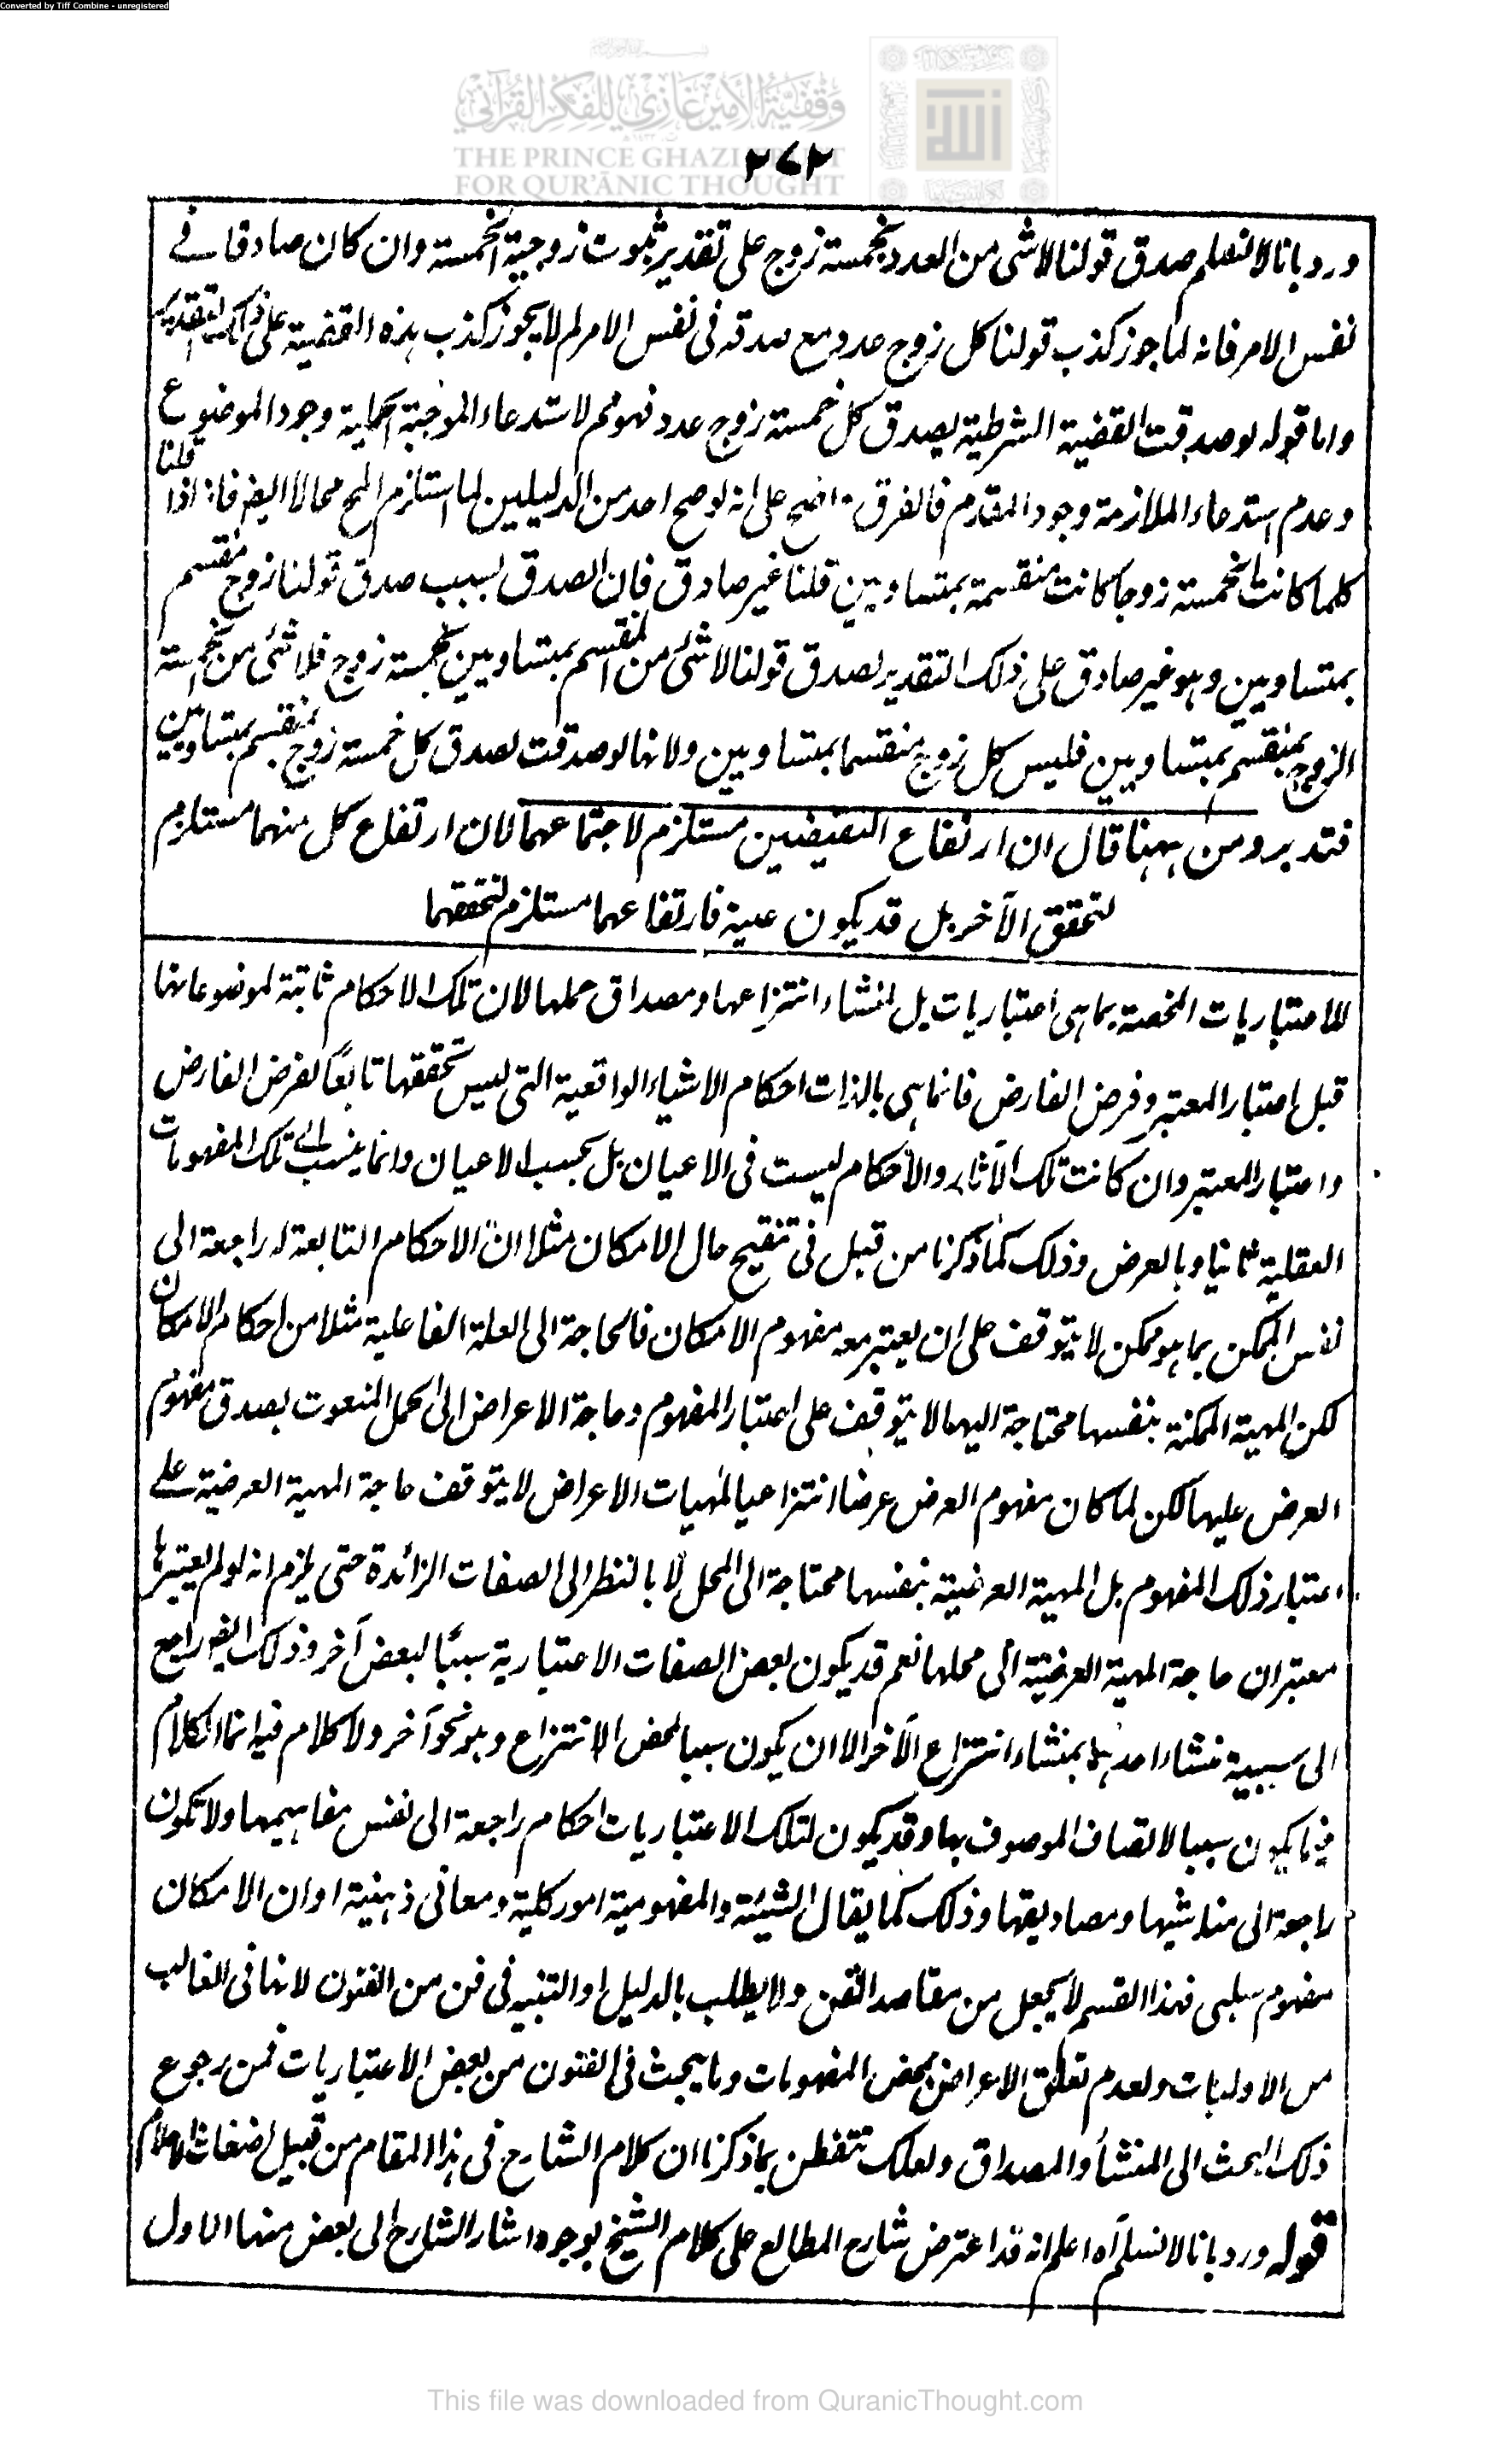 Converted by Tiff Combine - unregistered
وقفية الأمير غازي للفكر القرآني
THE PRINCE GHAZI TRUST
FOR QUR'ĀNIC THOUGHT
٢٧٢
ورد بانا لا نسلم صدق قولنا لا شئ من العدد بخمسة زوج على تقدير ثبوت زوجية الخمسة وان كان صادقا في
نفس الامر فانه لما جوز كذب قولنا كل زوج عدد مع صدقه فى نفس الامر لم لا يجوز كذب هذه القضية على ذلك التقدير
واما قوله لو صدقت القضية الشرطية يصدق كل خمسة زوج عدد فهو مم لاستدعاء الموجبة الحملية وجود الموضوع
وعدم استدعاء الملازمة وجود المقدم فالفرق واضح على انه لو صح احد من الدليلين لما استلزم المح محالا ايضا فانه اذا قلنا
كلما كانت الخمسة زوجا كانت منقسمة بمتساويين قلنا غير صادق فان الصدق بسبب صدق قولنا زوج منقسم
بمتساويين وهو غير صادق على ذلك التقدير لصدق قولنا لا شئ من المنقسم بمتساويين بخمسة زوج فلا شئ من الخمسة
الزوج بمنقسم بمتساويين فليس كل زوج منقسما بمتساويين ولانها لو صدقت لصدق كل خمسة زوج بمنقسم بمتساويين
فتدبر ومن ههنا قال ان ارتفاع النقيضين مستلزم لاجتماعهما لان ارتفاع كل منهما مستلزم
لتحقق الآخر بل قد يكون عينه فارتفاعهما مستلزم لتحققهما
للاعتباريات المخصة بما هى اعتباريات بل لمنشاء انتزاعها ومصداق حملها لان تلك الاحكام ثابتة لموضوعاتها
قبل اعتبار المعتبر وفرض الفارض فانما هى بالذات احكام الاشياء الواقعية التى ليس تحققها تابعًا لفرض الفارض
واعتبار المعتبر وان كانت تلك الآثار والاحكام ليست فى الاعيان بل بحسب الاعيان وانما ينسب الى تلك المفهومات
العقلية ثانيا وبالعرض وذلك كما ذكرنا من قبل فى تنقيح حال الامكان مثلا ان الاحكام التابعة له راجعة الى
نفس الممكن بما هو ممكن لا يتوقف على ان يعتبر معه مفهوم الامكان فالحاجة الى العلة الفاعلية مثلا من احكام الامكان
لكن المهية الممكنة بنفسها محتاجة اليها لا يتوقف على اعتبار المفهوم وحاجة الاعراض الى المحل المنعوت بصدق مفهوم
العرض عليها لكن لما كان مفهوم العرض عرضا انتزاعيا لمهيات الاعراض لا يتوقف حاجة المهية العرضية على
اعتبار ذلك المفهوم بل المهية العرضية بنفسها محتاجة الى المحل لا بالنظر الى الصفات الزائدة حتى يلزم انه لو لم يعتبرها
معتبر ان حاجة المهية العرضية الى محلها نعم قد يكون بعض الصفات الاعتبارية سببًا لبعض آخر وذلك ايضا راجع
الى سببية منشاء احدهما بمنشاء انتزاع الآخر الا ان يكون سببا لمحض الانتزاع وهو نحو آخر ولا كلام فيه انما الكلام
فيما يكون سببا لاتصاف الموصوف بها وقد يكون لتلك الاعتباريات احكام راجعة الى نفس مفاهيمها ولا تكون
راجعة الى مناشيها ومصاديقها وذلك كما يقال الشيئية والمفهومية امور كلية ومعانى ذهنية او ان الامكان
مفهوم سلبى فهذا القسم لا يجعل من مقاصد الفن ولا يطلب بالدليل او التنبيه فى فن من الفنون لانها فى الغالب
من الاوليات ولعدم تعلق الاعراض بمحض المفهومات وما يبحث فى الفنون من بعض الاعتباريات فمن رجوع
ذلك البحث الى المنشأ والمصداق ولعلك تتفطن بما ذكرنا ان كلام الشارح فى هذا المقام من قبيل اضغاث الاحلام
قوله ورد بانا لا نسلم آه اعلم انه قد اعترض شارح المطالع على كلام الشيخ بوجوه اشار الشارح الى بعض منها الاول
This file was downloaded from QuranicThought.com